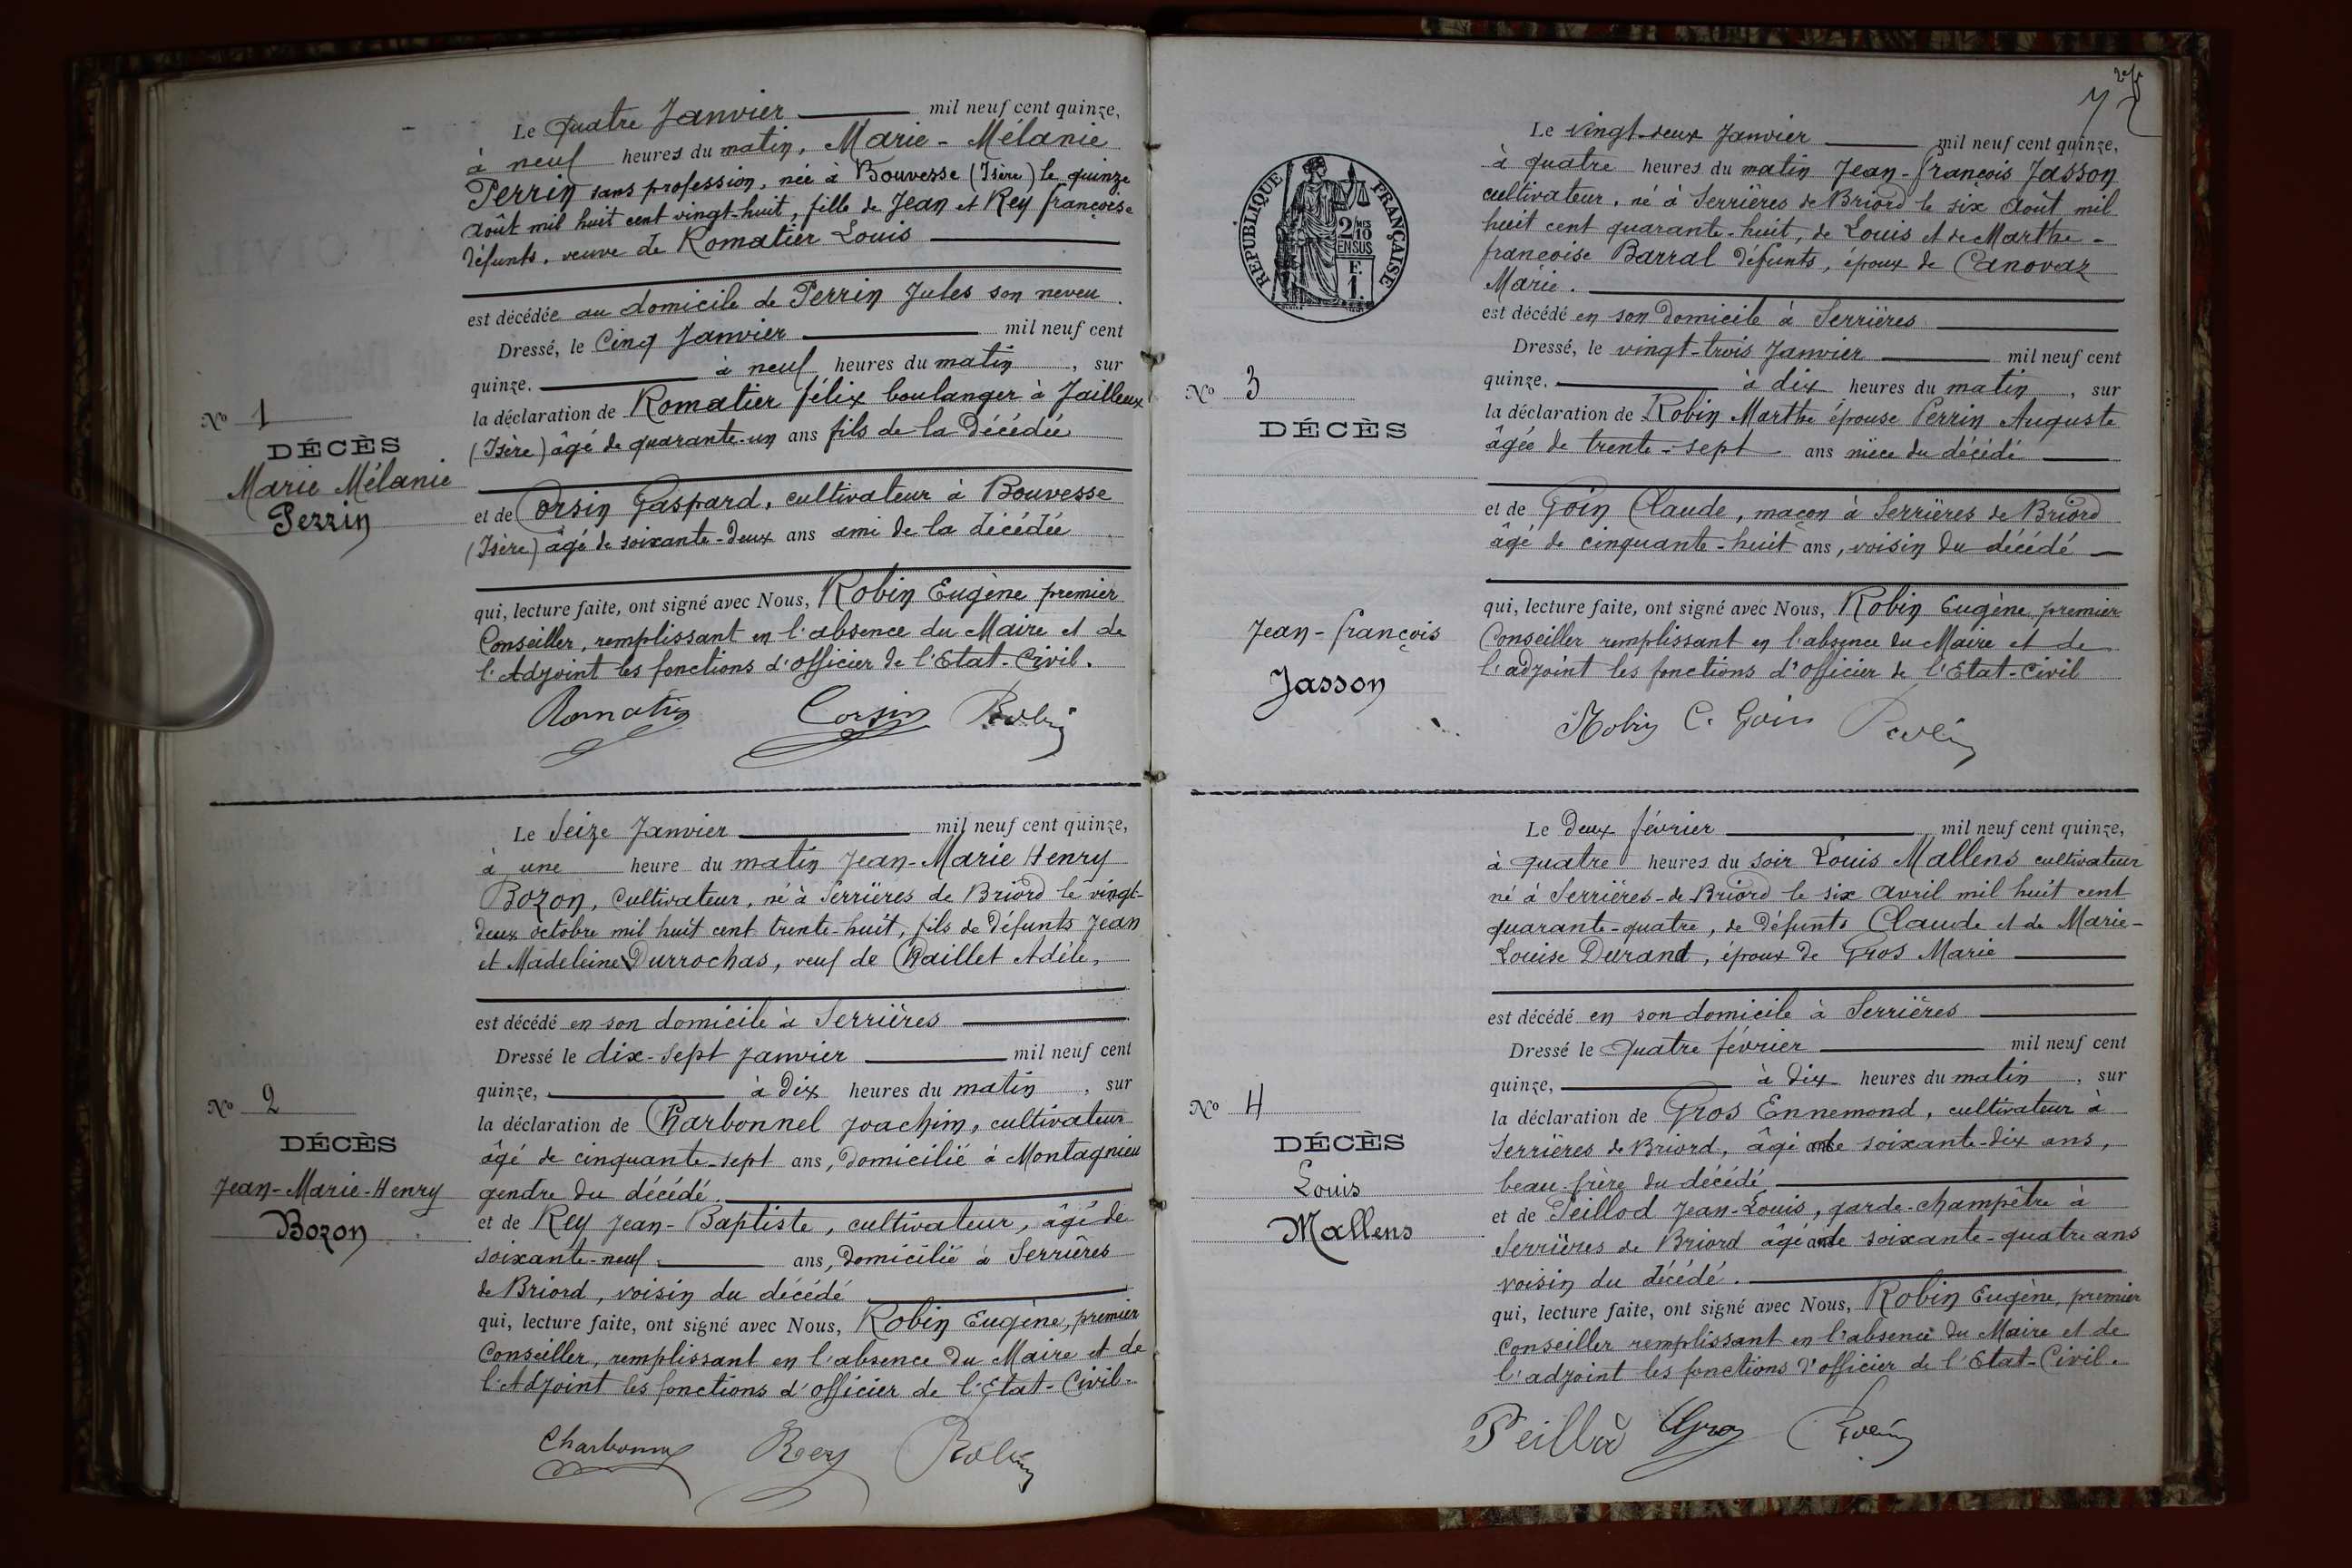 Le quatre Janvier mil neuf cent quinze,
à neuf heures du matin, Marie-Mélanie
Perrin sans profession, née à Bouvesse (Isère) le quinze
Août mil huit cent vingt-huit, fille de Jean et Rey françoise
défunts, veuve de Romatier Louis
est décédée au domicile de Perrin Jules son neveu.
Dressé, le Cinq Janvier mil neuf cent
quinze, à neuf heures du matin, sur
la déclaration de Romatier félix boulanger à Jailleux
(Isère) âgé de quarante-un ans fils de la décédée
et de Corsin Gaspard, cultivateur à Bouvesse
(Isère) âgé de soixante-deux ans ami de la décédée
qui, lecture faite, ont signé avec Nous, Robin Eugène premier
Conseiller, remplissant en l'absence du Maire et de
l'Adjoint les fonctions d'officier de l'Etat-Civil.
Romatier Corsin Robin
N° 1
DÉCÈS
Marie Mélanie
Perrin
Le Seize Janvier mil neuf cent quinze,
à une heure du matin Jean-Marie Henry
Bozon, Cultivateur, né à Serrières de Briord le vingt-
deux octobre mil huit cent trente-huit, fils de défunts Jean
et Madeleine Durrochas, veuf de Chaillet Adèle,
est décédé en son domicile à Serrières
Dressé le dix-sept Janvier mil neuf cent
quinze, à dix heures du matin, sur
la déclaration de Charbonnel Joachim, cultivateur
âgé de cinquante-sept ans, domicilié à Montagnieu
gendre du décédé.
et de Rey Jean-Baptiste, cultivateur, âgé de
soixante-neuf ans, domicilié à Serrières
de Briord, voisin du décédé
qui, lecture faite, ont signé avec Nous, Robin Eugène, premier
Conseiller, remplissant en l'absence du Maire et de
l'Adjoint les fonctions d'officier de l'Etat-Civil.
Charbonnel Rey Robin
N° 2
DÉCÈS
Jean-Marie-Henry
Bozon
RÉPUBLIQUE FRANÇAISE
2/10 MES
EN SUS
F.
1.
Le vingt-deux Janvier mil neuf cent quinze,
à quatre heures du matin Jean-françois Jasson
cultivateur, né à Serrières de Briord le six Août mil
huit cent quarante-huit, de Louis et de Marthe-
francoise Barral défunts, époux de Canovaz
Marie.
est décédé en son domicile à Serrières
Dressé, le vingt-trois Janvier mil neuf cent
quinze, à dix heures du matin, sur
la déclaration de Robin Marthe épouse Perrin Auguste
âgée de trente-sept ans nièce du décédé
et de Goin Claude, maçon à Serrières de Briord
âgé de cinquante-huit ans, voisin du décédé
qui, lecture faite, ont signé avec Nous, Robin Eugène premier
Conseiller remplissant en l'absence du Maire et de
l'adjoint les fonctions d'officier de l'Etat-Civil
Robin C. Goin Robin
N° 3
DÉCÈS
Jean-françois
Jasson
Le deux février mil neuf cent quinze,
à quatre heures du soir Louis Mallens cultivateur
né à Serrières-de Briord le six avril mil huit cent
quarante-quatre, de défunts Claude et de Marie-
Louise Durand, époux de Gros Marie
est décédé en son domicile à Serrières
Dressé le quatre février mil neuf cent
quinze, à dix heures du matin, sur
la déclaration de Gros Ennemond, cultivateur à
Serrières de Briord, âgé de soixante-dix ans,
beau-frère du décédé
et de Peillod Jean-Louis, garde-champêtre à
Serrières de Briord âgé de soixante-quatre ans
voisin du décédé.
qui, lecture faite, ont signé avec Nous, Robin Eugène, premier
Conseiller remplissant en l'absence du Maire et de
l'adjoint les fonctions d'officier de l'Etat-Civil.
Peillod Gros Robin
N° 4
DÉCÈS
Louis
Mallens